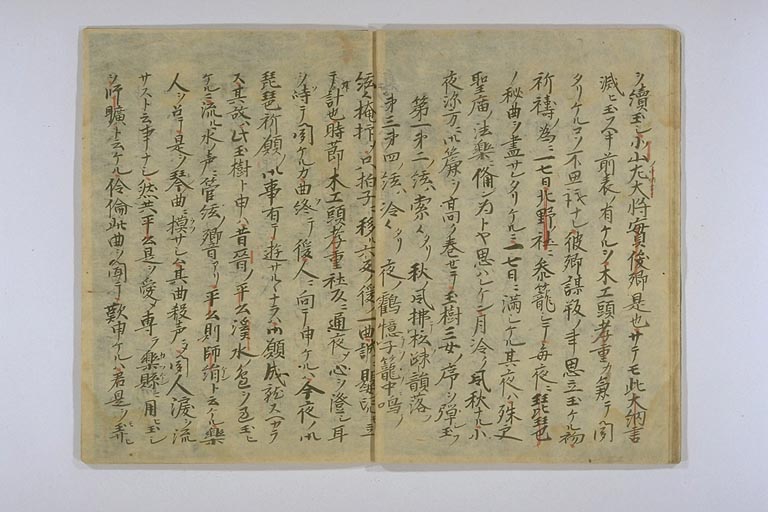 シ續玉シ小山左大将實俊卿是也サテモ此大納言
滅ヒ玉フヘキ前表ノ有ケルシ木工頭孝重カ兼テ聞
タリケルコソ不思議ナレ彼卿謀叛ノ事思立玉ケル初
祈禱ノ為ニ一七日北野ノ社ニ參籠シテ毎夜ニ琵琶
ノ秘曲ヲ盡サレタリケルニ一七日ニ満シケル其夜ハ殊更
聖廟ノ法樂ニ備ン為トヤ思ハレケン月冷ク風秋ナル小
夜深方ニ御簾ヲ高ク巻セテ玉樹三女ノ序ヲ弾玉フ
第一第二ノ絃ハ索々タリ秋ノ風拂松疎韻落ツ
第三第四ノ絃ハ冷々タリ夜ノ鶴憶子籠中鳴ク
絃々掩抑シテ只拍子ニ移ル六反ノ後ノ一曲誠ニ
テ計也時節木工頭孝重社頭ニ通夜シテ心ヲ澄シ耳
ヲ側テ聞ケルカ曲終テ後人ニ向テ申ケルハ今夜ノ御
琵琶祈願ノ御事有テ遊サルヽナラハ御願成就スヘカラ
ス其故ハ此玉樹ト申ハ昔晋ノ平公濮水ノ邑ヲ過玉ヒ
ケルニ流ルヽ水ノ声ニ管絃ノ響アリ平公則師涓ト云ケル樂
人ヲ召テ是ヲ琴ノ曲ニ模サシム其曲殺声ニシテ聞人涙ヲ流
サスト云事ナシ然共平公是ヲ愛シテ専ラ樂縣ニ用玉ヒ
シヲ師曠ト云ケル伶倫此曲ヲ聞テ歎申ケルハ君是ヲ弄ヒ